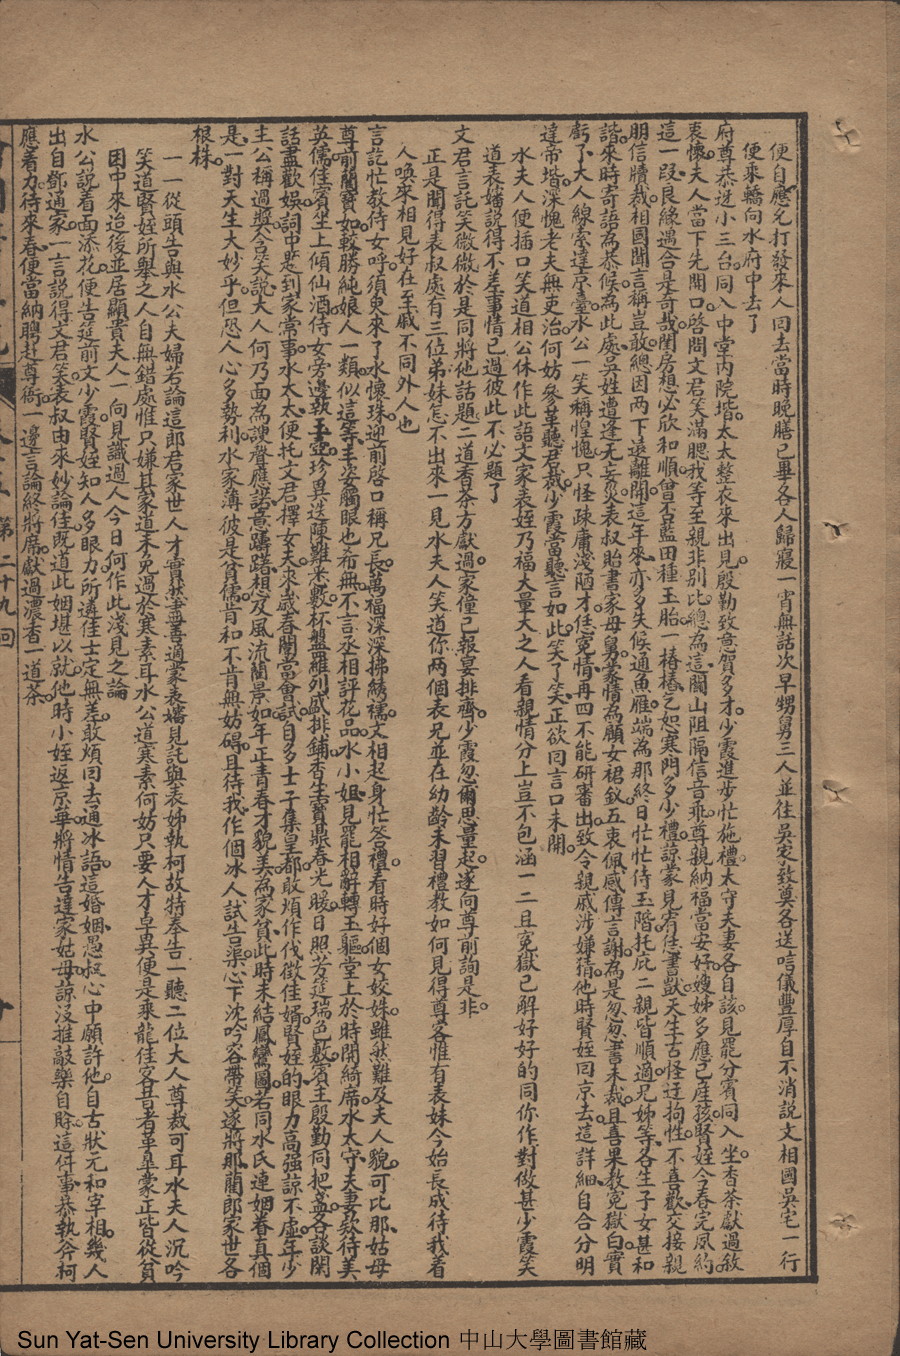 便自應允打發來人回去當時晚膳已畢各人歸寢一宵無話次早甥舅三人並往吳家致奠各送唁儀豐厚自不消說文相國吳宅一行
便乘轎向水府中去了
府尊恭迓小三台。同入中堂內院堦。太太整衣來出見。殷勤致意賀多才。少霞進步忙施禮。太守夫妻各自該。見罷分賓同入坐。杏茶獻過敘
衷懷。夫人當下先開口。啓問文君笑滿腮。我等至親非别比。總為這關山阻隔信音乖。尊親納福當安好。嫂姊多應已產孩。賢姪今春完夙約。
這一段良緣遇合是奇哉。閨房想必欣和順。曾否藍田種玉胎。一樁樁乞恕寒門多少禮。諒蒙見宥佳書獃。天生古怪迂拘性。不喜歡交接親
朋信牘裁。相國聞言稱豈敢。總因兩下遠離開。這年來亦多失候通魚雁。端為那終日忙忙侍玉階。托庇二親皆順適。兄姊等各生子女甚和
諧。來時寄語為恭候。為此處吳姓遭逢无妄災。表叔貽書家母舅。蒙情為顧女裙釵。五衷佩感傳言謝。為是忽忽書未裁。且喜果教冤獄白。實
虧了大人線索達京臺。水公一笑稱惶愧。只怪疎庸淺陋才。佳冤情再四不能研審出。致令親戚涉嫌猜。他時賢姪回京去。這詳細自合分明
達帝堦。深愧老夫無吏治。何妨參革聽君裁。少霞當聽言如此。笑了笑正欲回言口未開。
水夫人便插口笑道相公休作此語文家表姪乃福大量大之人看親情分上豈不包涵一二且冤獄已解好好的同你作對做甚少霞笑
道表嬸說得不差事情已過彼此不必題了
文君言訖笑微微。於是同將他話題。二道香茶方獻過。家僮已報宴排齊。少霞忽爾思量起。遂向尊前詢是非。
正是聞得表叔處有三位弟妹怎不出來一見水夫人笑道你兩個表兄並在幼齡未習禮教如何見得尊客惟有表妹今始長成待我着
人喚來相見好在至戚不同外人也
言訖忙教侍女呼。須臾來了水懷珠。迎前啓口稱兄長。萬福深深拂綉襦。文相起身忙答禮。看時好個女姣姝。雖然難及夫人貌。可比那姑母
尊前蘭寶如。較勝純娘人一類。似這等丰姿觸眼也希無。不言丞相評花品。水小姐見罷相辭轉玉軀。堂上於時開綺席。水太守夫妻欵待美
英儒。佳賓坐上傾仙酒。侍女旁邊執玉壺。珍異迭陳難悉數。杯盤羅列戚排鋪。香生寶鼎春光暖。日照芳筵瑞色敷。賓主殷勤同把盞。各談閑
話盡歡娛。詞中題到家常事。水太太便托文君擇女夫。求歲春闈當會試。自多士子集皇都。敢煩作伐徵佳婿。賢姪的眼力高强諒不虛。年少
主公稱過獎。含笑說大人何乃面為諛。聲應諾。意躊躇。想及風流蘭景如。年正青春才貌美。為家貧此時未結鳳鸞圖。若同水氏連姻眷。真個
是一對天生大妙乎。但恐人心多勢利。水家薄彼是貧儒。肯和不肯無妨碍。且待我作個冰人試告渠。心下沈吟容帶笑。遂將那蘭郎家世各
根株。
一一從頭告與水公夫婦若論這郎君家世人才實然盡善適蒙表嬸見託與表姊執柯故特奉告一聽二位大人尊裁可耳水夫人沉吟
笑道賢姪所舉之人自無錯處惟只嫌其家道未免過於寒素耳水公道寒素何妨只要人才卓異便是乘龍佳客昔者革皐蒙正皆從貧
困中來迨後並居顯貴夫人一向見識過人今日何作此淺見之論
水公說看面添花。便告筵前文少霞。賢姪知人多眼力。所遴佳士定無差。敢煩回去通冰語。這婚姻愚叔心中願許他。自古狀元和宰相。幾人
出自鄧通家。一言說得文君笑。表叔由來妙論佳。既道此姻堪以就。他時小姪返京華。將情告達家姑母。諒沒推敲樂自賒。這件事恭執斧柯
應着力。待來春便當納聘赴尊衙。一邊言論終將席。獻過濃香一道茶。
第二十九回
Sun Yat-Sen University Library Collection 中山大學圖書館藏